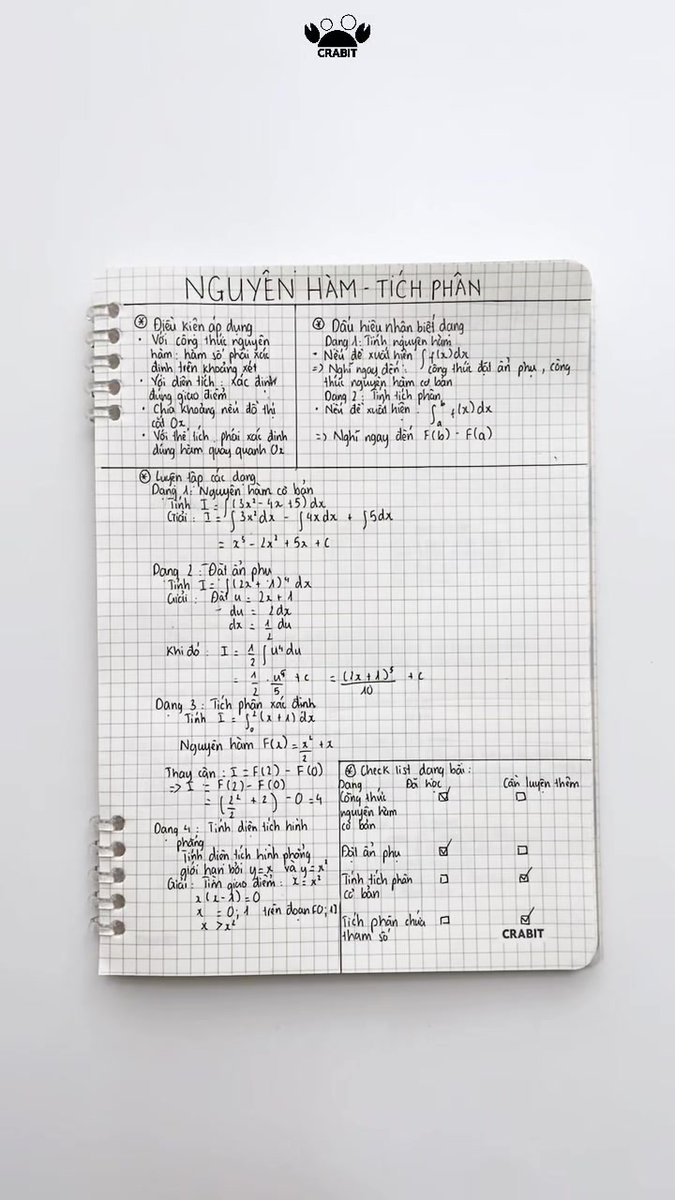 CRABIT
NGUYÊN HÀM - TÍCH PHÂN
* Điều kiện áp dụng
• Với công thức nguyên
hàm: hàm số phải xác
định trên khoảng xét
• Với diện tích: xác định
đúng giao điểm
• Chia khoảng nếu đồ thị
cắt Ox
• Với thể tích phải xác định
đúng hàm quay quanh Ox
* Dấu hiệu nhận biết dạng
Dạng 1: Tính nguyên hàm
• Nếu đề xuất hiện ∫f(x)dx
=> Nghĩ ngay đến: công thức đặt ẩn phụ, công
thức nguyên hàm cơ bản
Dạng 2: Tính tích phân
• Nếu đề xuất hiện: ∫ₐᵇ f(x)dx
=> Nghĩ ngay đến F(b) - F(a)
* Luyện tập các dạng
Dạng 1: Nguyên hàm cơ bản
Tính I = ∫(3x² - 4x + 5)dx
Giải: I = ∫3x²dx - ∫4xdx + ∫5dx
= x³ - 2x² + 5x + C
Dạng 2: Đặt ẩn phụ
Tính I = ∫(2x + 1)⁴ dx
Giải: Đặt u = 2x + 1
du = 2dx
dx = 1/2 du
Khi đó: I = 1/2 ∫u⁴du
= 1/2 . u⁵/5 + C = (2x + 1)⁵/10 + C
Dạng 3: Tích phân xác định
Tính I = ∫₀²(x + 1)dx
Nguyên hàm F(x) = x²/2 + x
Thay cận: I = F(2) - F(0)
=> I = F(2) - F(0)
= (2²/2 + 2) - 0 = 4
Dạng 4: Tính diện tích hình
phẳng
Tính diện tích hình phẳng
giới hạn bởi y = x và y = x²
Giải: Tìm giao điểm: x = x²
x(x - 1) = 0
x = 0; 1 trên đoạn [0; 1]
x > x²
* Check list dạng bài:
Dạng Đã học Cần luyện thêm
Công thức
nguyên hàm
cơ bản
Đặt ẩn phụ
Tính tích phân
cơ bản
Tích phân chứa
tham số
CRABIT